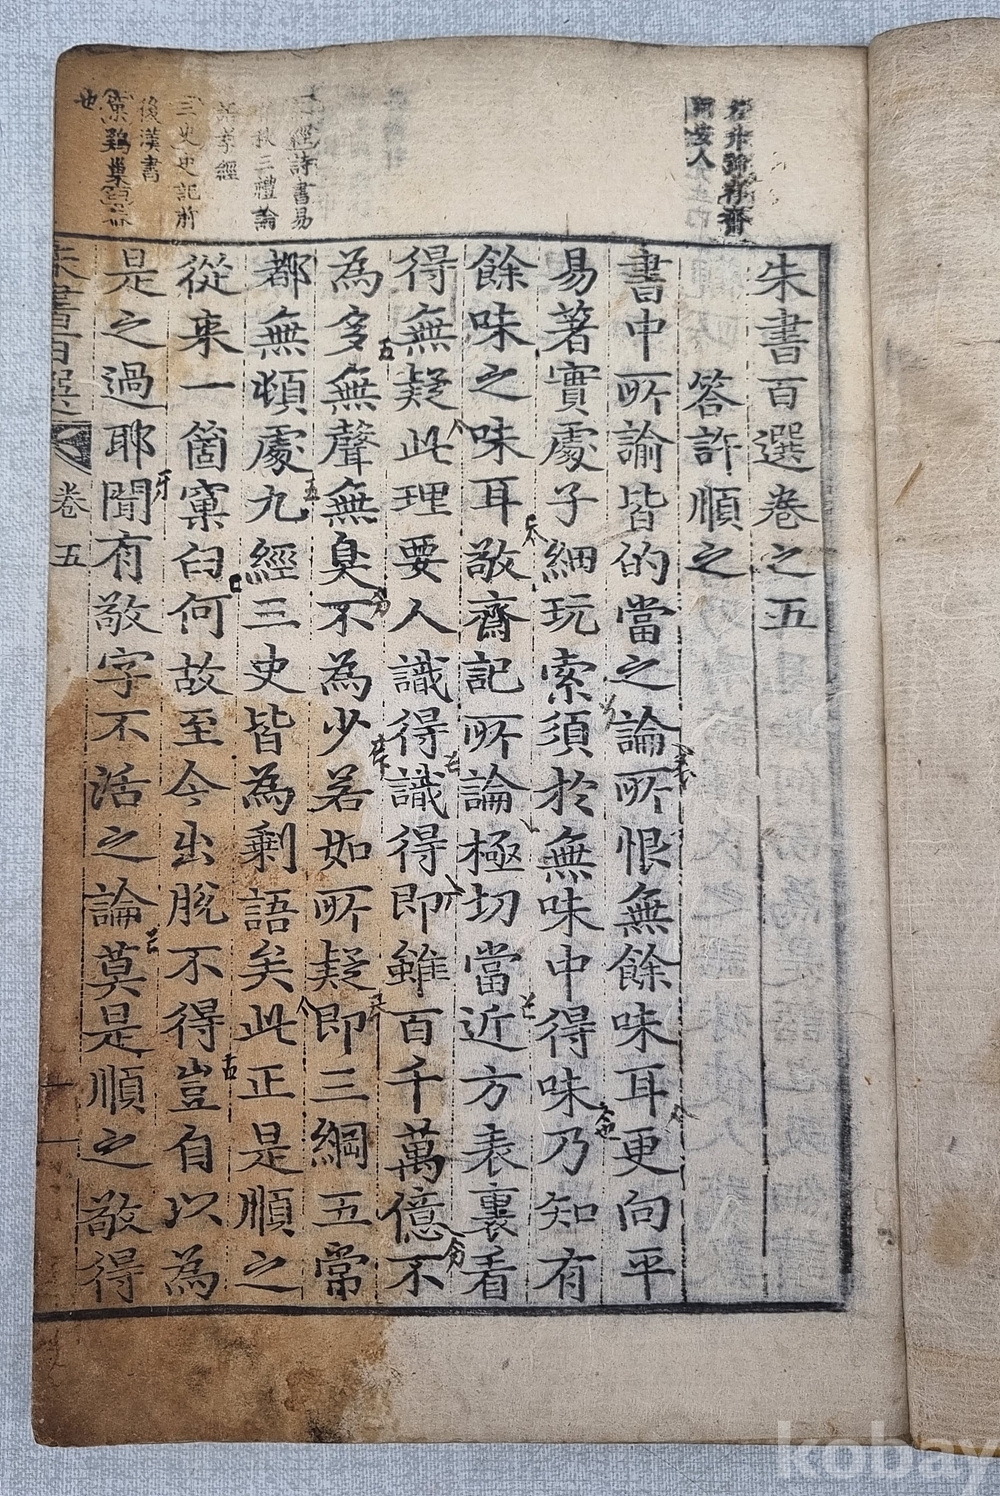 朱書百選卷之五
答許順之
書中所諭皆的當之論所恨無餘味耳更向平
易著實處子細玩索須於無味中得味乃知有
餘味之味耳敬齋記所論極切當近方表裏看
得無疑此理要人識得識得即雖百千萬億不
為多無聲無臭不為少若如所疑即三綱五常
都無頓處九經三史皆為剩語矣此正是順之
從来一箇窠臼何故至今出脫不得豈自以為
是之過耶聞有敬字不活之論莫是順之敬得
朱書百選
卷五
經詩書易
秋三禮論
孝經
三史史記前
後漢書
也
kobay